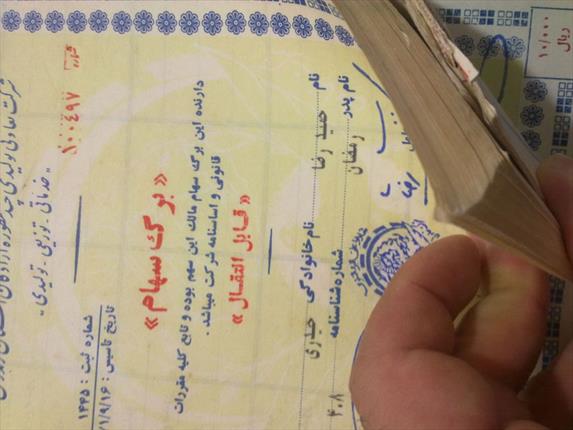 شرکت تعاونی تولیدی چند منظوره آزادگان
«خدماتی - توزیعی - تولیدی»
شماره ثبت : ۱۴۴۵
تاریخ تاسیس : ۱/۹/۱۶
شماره ۱۰۰۴۹۷
«برگ سهام»
دارنده این برگ سهام مالک این سهم بوده و تابع کلیه مقررات
قانونی و اساسنامه شرکت میباشد .
«قابل انتقال»
نام حمید رضا نام خانوادگی حیدری
نام پدر رمضان شماره شناسنامه ۴۰۸
۱۰/۰۰۰ ریال